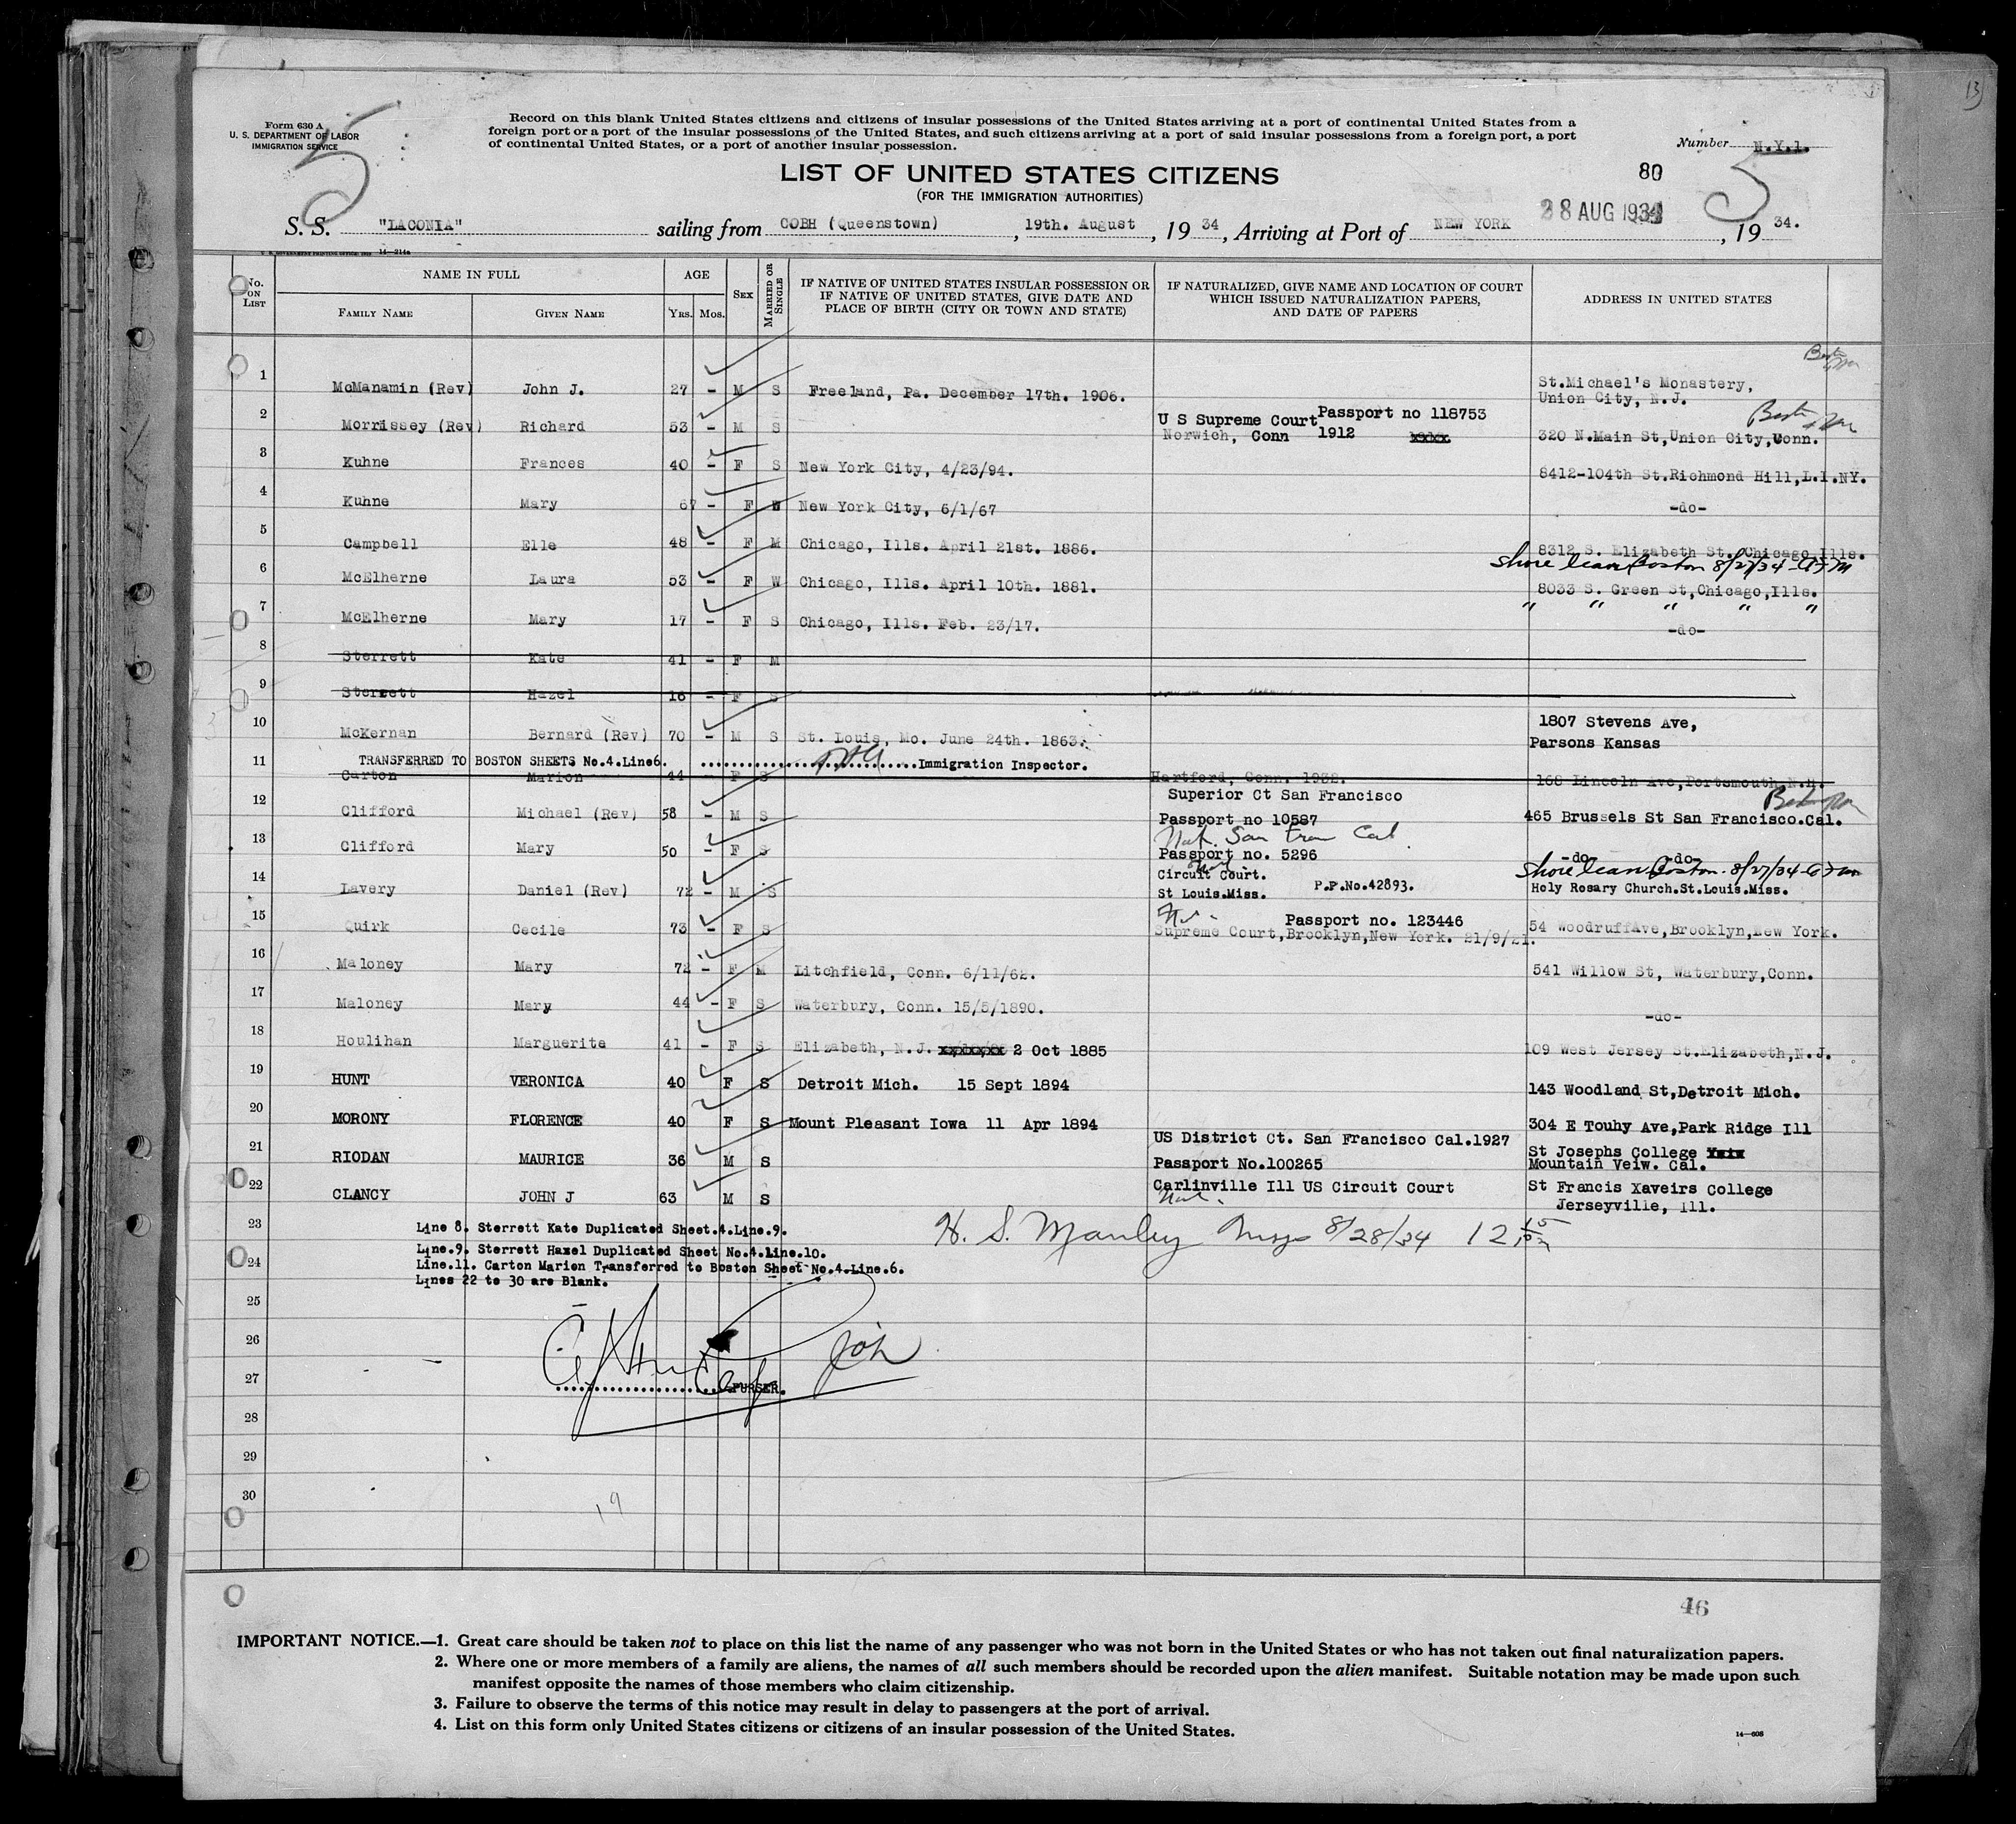 13
Form 630 A
U. S. DEPARTMENT OF LABOR
IMMIGRATION SERVICE
5
Record on this blank United States citizens and citizens of insular possessions of the United States arriving at a port of continental United States from a
foreign port or a port of the insular possessions of the United States, and such citizens arriving at a port of said insular possessions from a foreign port, a port
of continental United States, or a port of another insular possession.
Number N.Y.1.
5
LIST OF UNITED STATES CITIZENS
80
(FOR THE IMMIGRATION AUTHORITIES)
28 AUG 1934
S. S. "LACONIA" sailing from COBH (Queenstown), 19th. August, 1934, Arriving at Port of NEW YORK, 1934.
U. S. GOVERNMENT PRINTING OFFICE: 14—214a
No. ON LIST NAME IN FULL AGE SEX MARRIED OR SINGLE IF NATIVE OF UNITED STATES INSULAR POSSESSION OR IF NATIVE OF UNITED STATES, GIVE DATE AND PLACE OF BIRTH (CITY OR TOWN AND STATE) IF NATURALIZED, GIVE NAME AND LOCATION OF COURT WHICH ISSUED NATURALIZATION PAPERS, AND DATE OF PAPERS ADDRESS IN UNITED STATES
FAMILY NAME GIVEN NAME YRS. MOS.
1 McManamin (Rev) John J. 27 - M S Freeland, Pa. December 17th. 1906. St.Michael's Monastery,
Union City, N.J.
2 Morrissey (Rev) Richard 53 - M S U S Supreme Court Passport no 118753
Norwich, Conn 1912 xxxx 320 N.Main St,Union City,Conn.
3 Kuhne Frances 40 - F S New York City, 4/23/94. 8412-104th St.Richmond Hill,L.I.NY.
4 Kuhne Mary 67 - F W New York City, 6/1/67 -do-
5 Campbell Elle 48 - F M Chicago, Ills. April 21st. 1886. 8312 S. Elizabeth St. Chicago Ills.
Shore leave Boston 8/27/34
6 McElherne Laura 53 - F W Chicago, Ills. April 10th. 1881. 8033 S. Green St,Chicago,Ills.
" " " " "
7 McElherne Mary 17 - F S Chicago, Ills. Feb. 23/17. -do-
8 Sterrett Kate 41 - F M
9 Sterrett Hazel 16 - F S
10 McKernan Bernard (Rev) 70 - M S St. Louis, Mo. June 24th. 1863. 1807 Stevens Ave,
Parsons Kansas
TRANSFERRED TO BOSTON SHEETS No.4.Line6. Immigration Inspector.
11 Carton Marion 44 - F S Hartford, Conn. 1932. 168 Lincoln Ave,Portsmouth,N.H.
12 Clifford Michael (Rev) 58 - M S Superior Ct San Francisco
Passport no 10587 465 Brussels St San Francisco.Cal.
Nat. San Fran Cal
13 Clifford Mary 50 - F S Passport no. 5296 -do- -do-
Shore leave Boston. 8/27/34
14 Lavery Daniel (Rev) 72 - M S Circuit Court.
St Louis.Miss. P.P.No.42893. Holy Rosary Church.St.Louis.Miss.
15 Quirk Cecile 73 - F S Passport no. 123446
Supreme Court,Brooklyn,New York. 21/9/21. 54 WoodruffAve,Brooklyn,New York.
16 Maloney Mary 72 - F M Litchfield, Conn. 6/11/62. 541 Willow St, Waterbury,Conn.
17 Maloney Mary 44 - F S Waterbury, Conn. 15/5/1890. -do-
18 Houlihan Marguerite 41 - F S Elizabeth, N.J. 2 Oct 1885 109 West Jersey St.Elizabeth,N.J.
19 HUNT VERONICA 40 F S Detroit Mich. 15 Sept 1894 143 Woodland St,Detroit Mich.
20 MORONY FLORENCE 40 F S Mount Pleasant Iowa 11 Apr 1894 304 E Touhy Ave,Park Ridge Ill
21 RIODAN MAURICE 36 M S US District Ct. San Francisco Cal.1927
Passport No.100265 St Josephs College
Mountain Veiw. Cal.
22 CLANCY JOHN J 63 M S Carlinville Ill US Circuit Court St Francis Xaveirs College
Jerseyville, Ill.
23 Line 8. Sterrett Kate Duplicated Sheet.4.Line.9.
H. S. Manley Insp 8/28/34 12
Line.9. Sterrett Hazel Duplicated Sheet No.4.Line.10.
24 Line.11. Carton Marion Transferred to Boston Sheet No.4.Line.6.
Lines 22 to 30 are Blank.
25
26
27 PURSER.
28
29
30
19
46
IMPORTANT NOTICE.—1. Great care should be taken not to place on this list the name of any passenger who was not born in the United States or who has not taken out final naturalization papers.
2. Where one or more members of a family are aliens, the names of all such members should be recorded upon the alien manifest. Suitable notation may be made upon such
manifest opposite the names of those members who claim citizenship.
3. Failure to observe the terms of this notice may result in delay to passengers at the port of arrival.
4. List on this form only United States citizens or citizens of an insular possession of the United States.
14—608